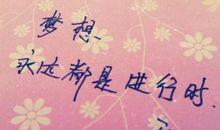 梦想
永远都是进行时.